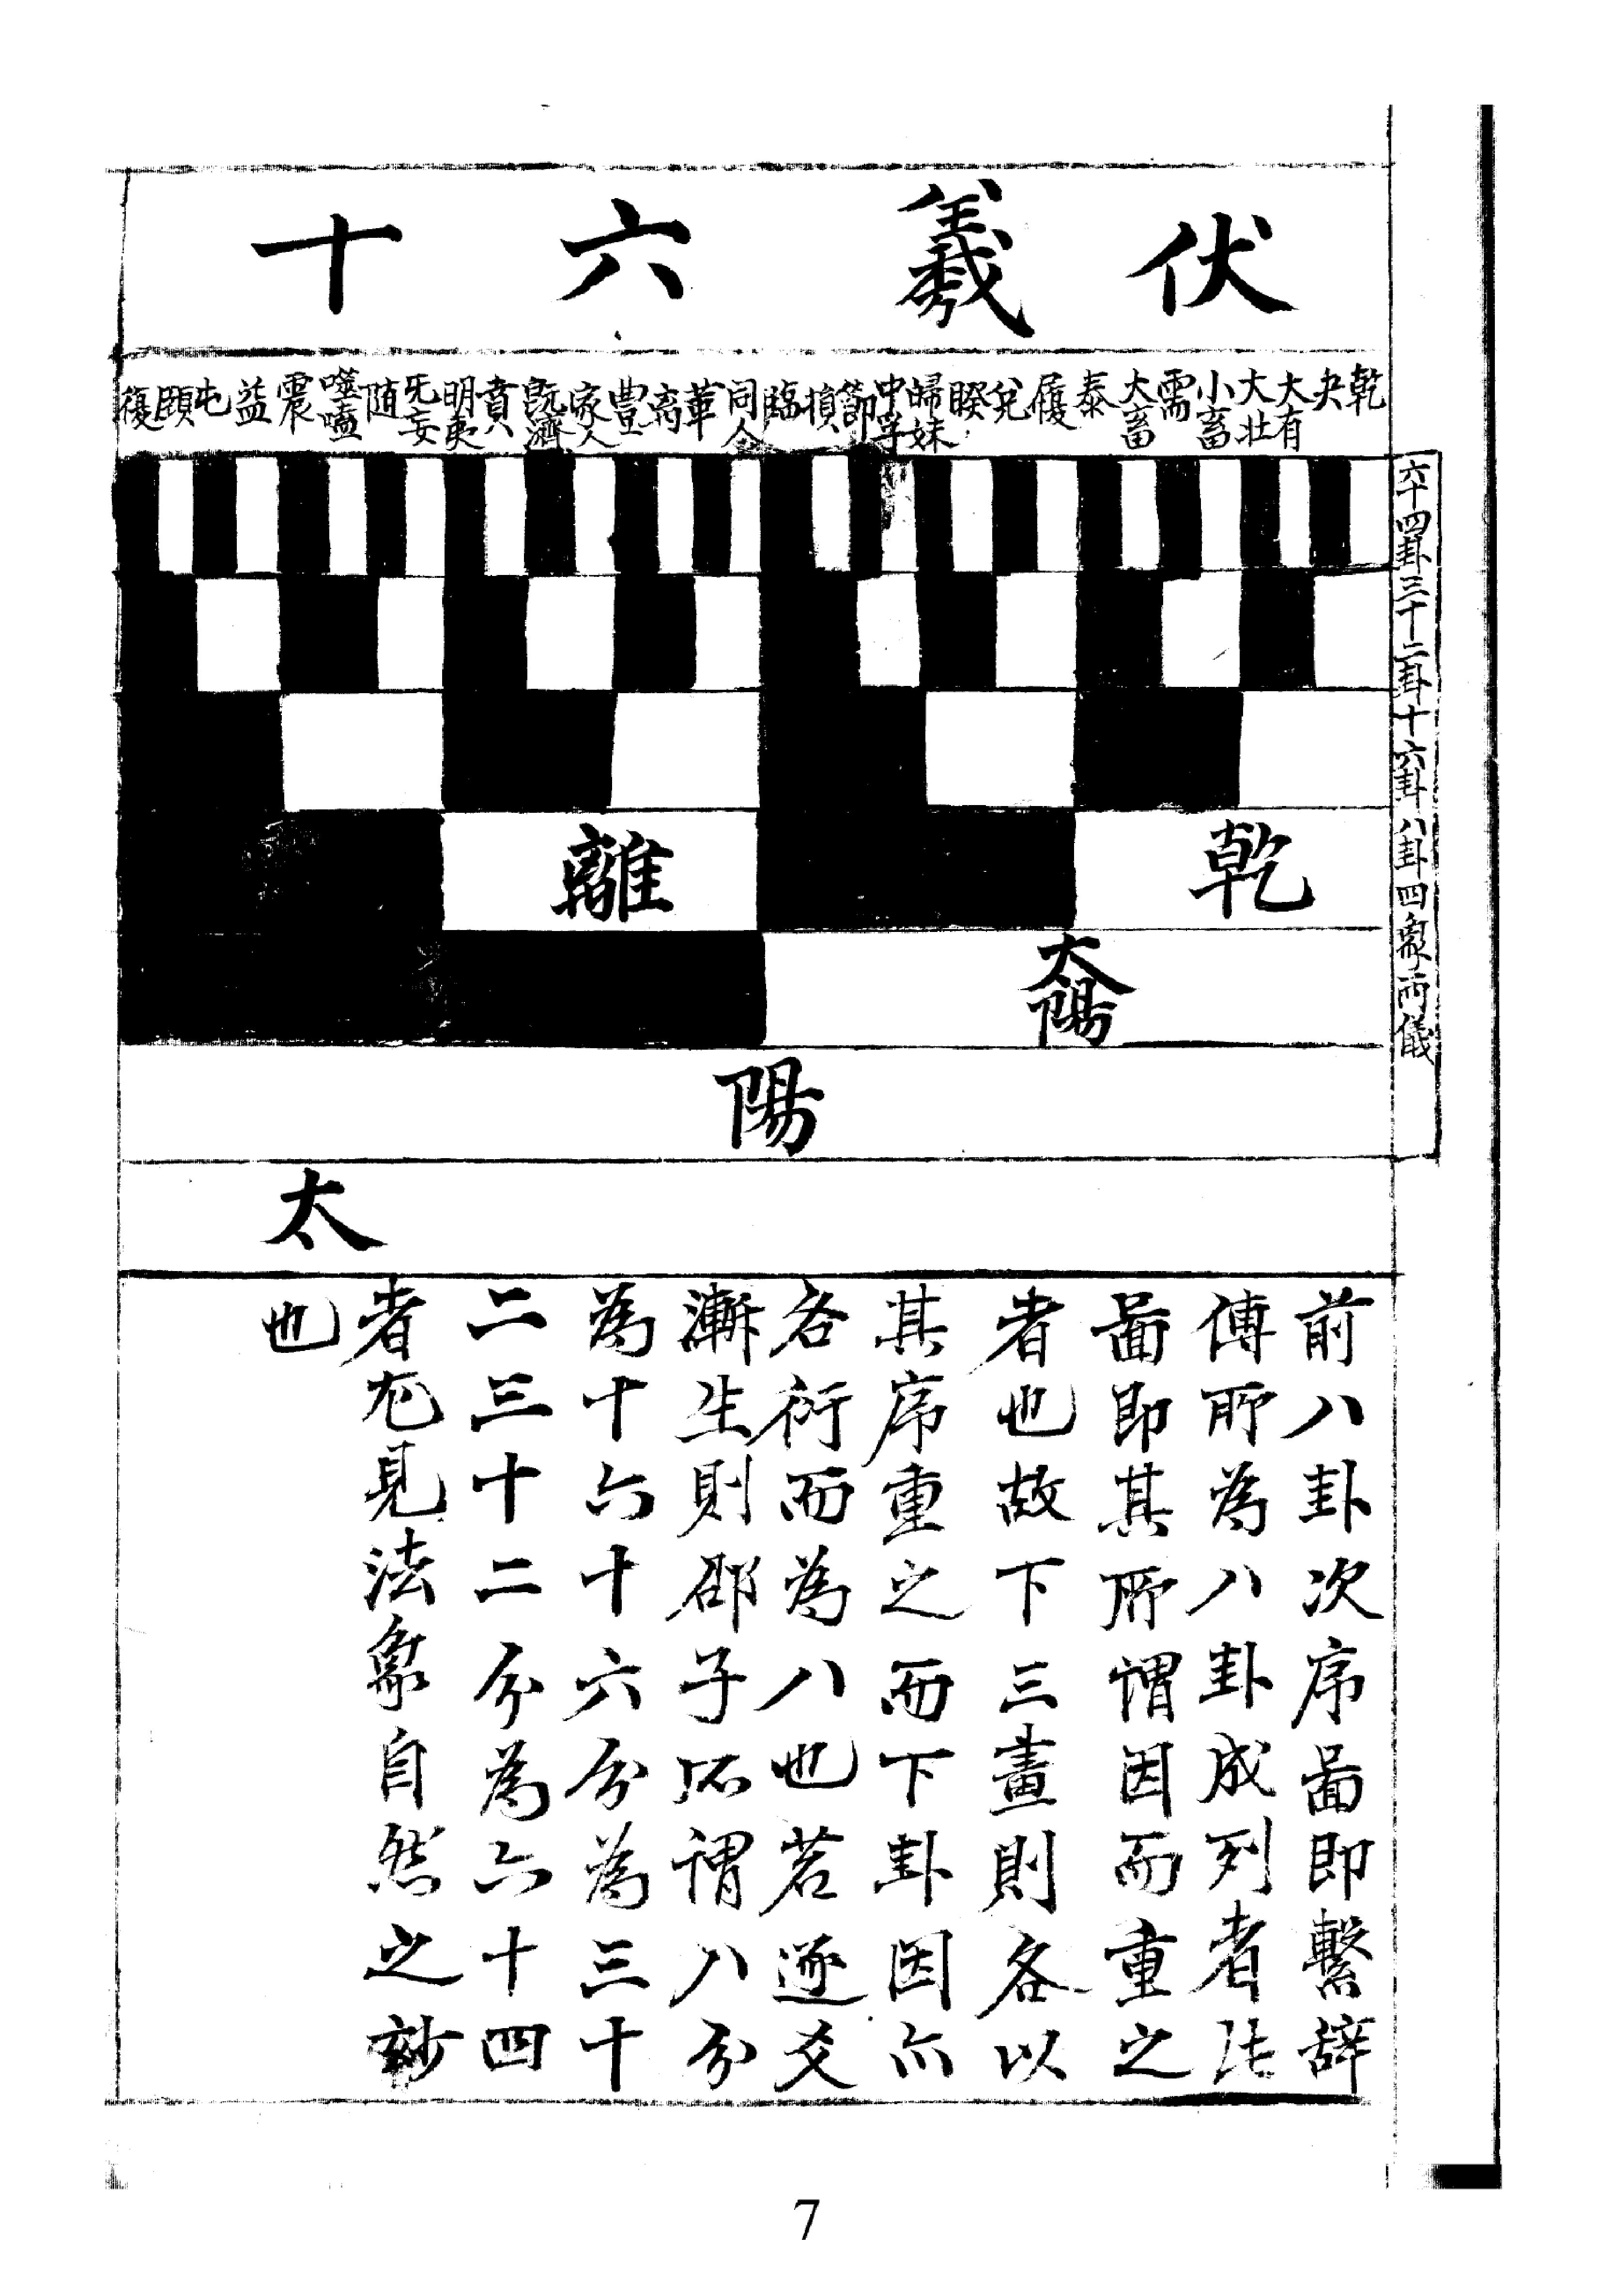 伏羲六十
乾
夬
大有
大壯
小畜
需
大畜
泰
履
兌
睽
歸妹
中孚
節
損
臨
同人
革
离
豐
家人
旣濟
賁
明夷
无妄
随
噬嗑
震
益
屯
頤
復
六十四卦三十二卦十六卦八卦四象兩儀
乾
離
太陽
陽
太
前八卦次序啚即繫辭
傳所為八卦成列者此
啚即其所謂因而重之
者也故下三畫則各以
其序重之而下卦因亦
各衍而為八也若逐爻
漸生則邵子所謂八分
為十六十六分為三十
二三十二分為六十四
者尤見法象自然之妙
也
7